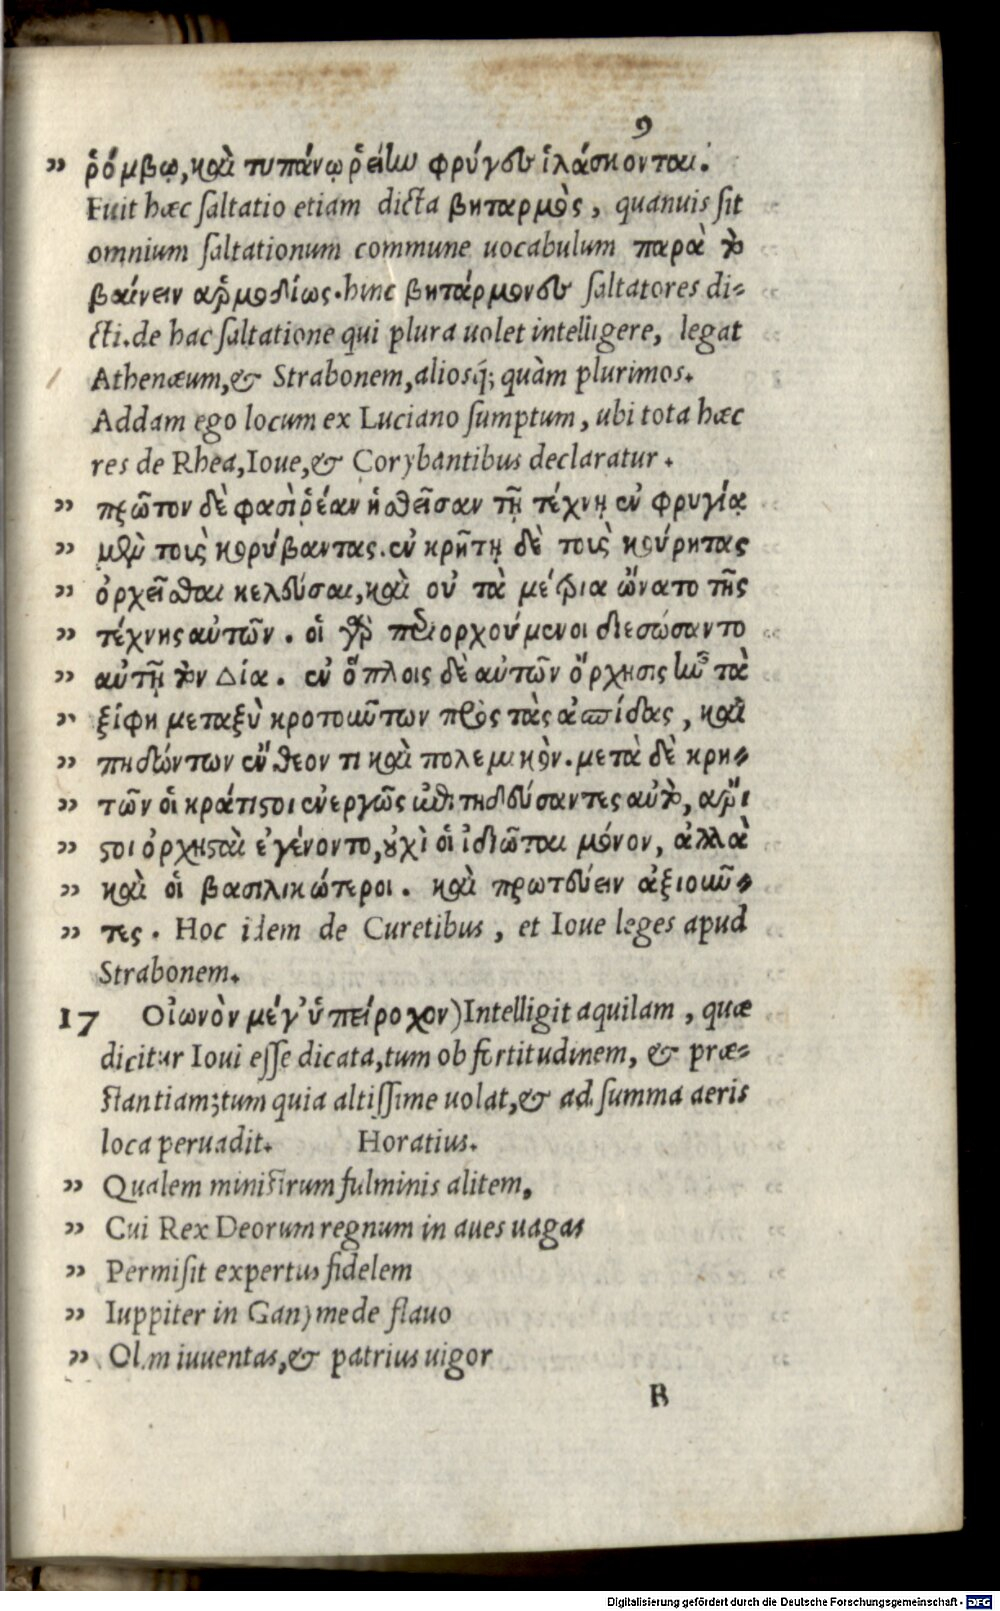 9
” ῥόμβῳ, καὶ τυπάνῳ ῥείην φρύγες ἱλάσκονται.
Fuit hæc ſaltatio etiam dicta βηταρμὸς, quanuis ſit
omnium ſaltationum commune uocabulum παρὰ τὸ
βαίνειν ἁρμοδίως. hinc βητάρμονες ſaltatores di-
cti. de hac ſaltatione qui plura uolet intelligere, legat
Athenæum, & Strabonem, aliosq; quàm plurimos.
Addam ego locum ex Luciano ſumptum, ubi tota hæc
res de Rhea, Ioue, & Corybantibus declaratur.
” πρῶτον δὲ φασὶ ῥέαν ἡσθεῖσαν τῇ τέχνῃ ἐν φρυγίᾳ
” μὲν τοὺς κορύβαντας. ἐν κρήτῃ δὲ τοὺς κούρητας
” ὀρχεῖσθαι κελεύσαι, καὶ οὐ τὰ μέτρια ὤνατο τῆς
” τέχνης αὐτῶν. οἱ γὰρ περιορχούμενοι διεσώσαντο
” αὐτῇ τὸν Δία. ἐν ὅπλοις δὲ αὐτῶν ὄρχησις ἦν τὰ
” ξίφη μεταξὺ κροτούντων πρὸς τὰς ἀσπίδας, καὶ
” πηδώντων ἔνθεον τι καὶ πολεμικὸν. μετὰ δὲ κρη-
” τῶν οἱ κράτιστοι ἐνεργῶς ἐπιτηδεύσαντες αὐτὸ, ἄρι
” στοι ὀρχησταὶ ἐγένοντο, οὐχὶ οἱ ἰδιῶται μόνον, ἀλλὰ
” καὶ οἱ βασιλικώτεροι. καὶ πρωτεύειν ἀξιοῦν-
” τες. Hoc idem de Curetibus, et Ioue leges apud
Strabonem.
17 Οἰωνὸν μέγ' ὑπείροχον) Intelligit aquilam, quæ
dicitur Ioui eſſe dicata, tum ob fortitudinem, & præ-
ſtantiam; tum quia altiſſime uolat, & ad ſumma aeris
loca peruadit. Horatius.
” Qualem miniſtrum fulminis alitem,
” Cui Rex Deorum regnum in aues uagas
” Permiſit expertus fidelem
” Iuppiter in Ganymede flauo
” Olim iuuentas, & patrius uigor
B
Digitalisierung gefördert durch die Deutsche Forschungsgemeinschaft - DFG